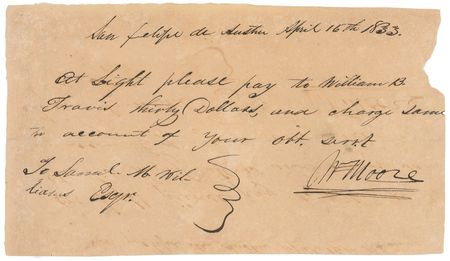 San Felipe de Austin April 16th 1833.
At Sight please pay to William B.
Travis thirty Dollars, and charge same
to account of Your obt. servt
To Samuel M. Wil-
liams Esqr.
Moore